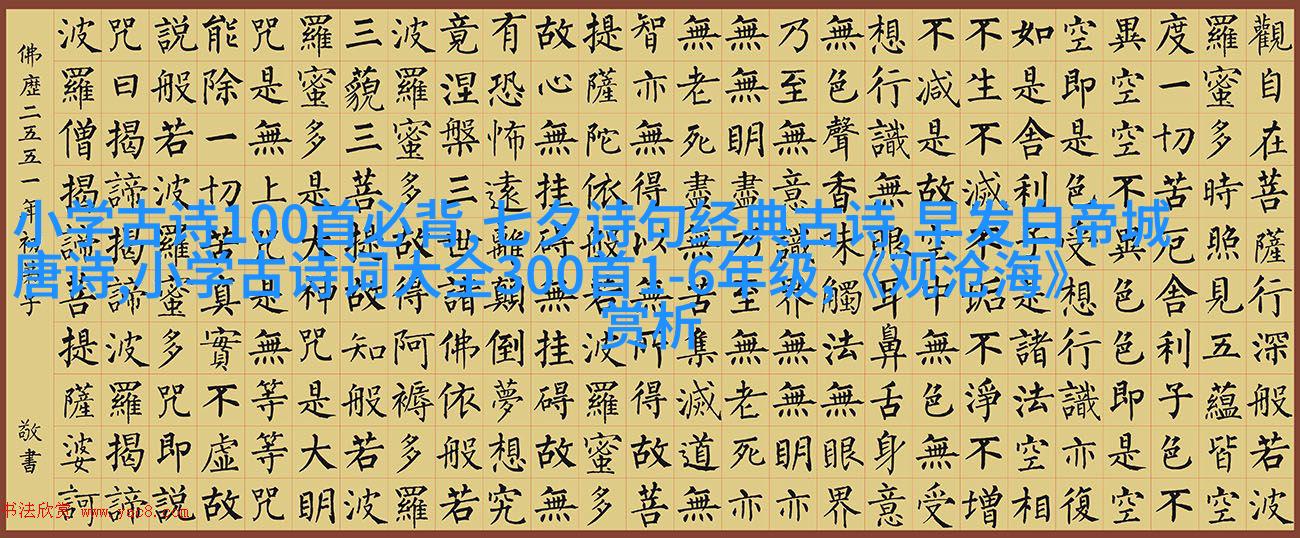 觀自在菩薩行深般若波
羅蜜多時照見五蘊皆空
度一切苦厄舍利子色不
異空空不異色色即是空
空即是色受想行識亦復
如是舍利子是諸法空相
不生不滅不垢不淨不增
不減是故空中無色無受
想行識無眼耳鼻舌身意
無色聲香味觸法無眼界
乃至無意識界無無明亦
無無明盡乃至無老死亦
無老死盡無苦集滅道無
智亦無得以無所得故菩
提薩陀依般若波羅蜜多
故心無挂碍無挂碍故無
有恐怖遠離顛倒夢想究
竟涅槃三世諸佛依般若
波羅蜜多故得阿褥多羅
三藐三菩提故知般若波
羅蜜多是大神咒是大明
咒是無上咒是無等等咒
能除一切苦真實不虛故
説般若波羅蜜多咒即説
咒曰揭諦揭諦波羅揭諦
波羅僧揭諦菩提薩婆訶
佛歷二五五一年初子
敬書
小学古诗100首必背,七夕诗句经典古诗,早发白帝城
唐诗,小学古诗词大全300首1-6年级,《观沧海》
赏析
书法欣赏 www.yac8.com